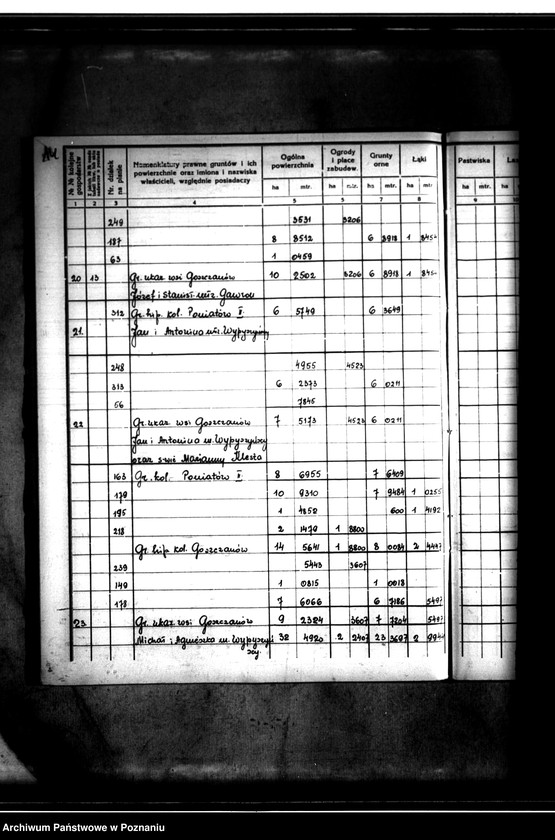 №№ kolejne gospodarstw
Nr. działek na planie
Nomenklatury prawne gruntów i ich powierzchnie oraz imiona i nazwiska właścicieli, względnie posiadaczy
Ogólna powierzchnia
Ogrody i place zabudow.
Grunty orne
Łąki
Pastwiska
ha mtr. ha mtr. ha mtr. ha mtr. ha mtr. ha
1 2 3 4 5 6 7 8 9
249 3531 3206
187 8 8512 6 8918 1
63 1 0459
20 13 Gr. ukaz. wsi Goszczanów 10 2502 3206 6 8918 1
Józef i Stanisł.
312 Gr. hip. kol. Poniatów I 6 5749 6 3649
21. Jan i Antonina
248 4955 4523
313 6 2373 6 0211
56 7845
22 Gr. ukaz. wsi Goszczanów 7 5173 4523 6 0211
Jan i Antonina m. Wypyszyńscy
oraz Marianny
163 Gr. kol. Poniatów I 8 6955 7 6409
179 10 9310 7 9484 1 0255
195 1 4852 600 1 4192
218 2 1479 1 8800
Gr. hip. kol. Goszczanów 14 5641 1 8800 8 0084 2 4447
239 5443 3607
149 1 0815 1 0018
178 7 6066 6 7186 5497
23 Gr. ukaz. wsi Goszczanów 9 2324 3607 7 7204 5497
Michał i Agnieszka m. Wypyszyń 32 4920 2 2407 23 3697 2
scy.
Archiwum Państwowe w Poznaniu